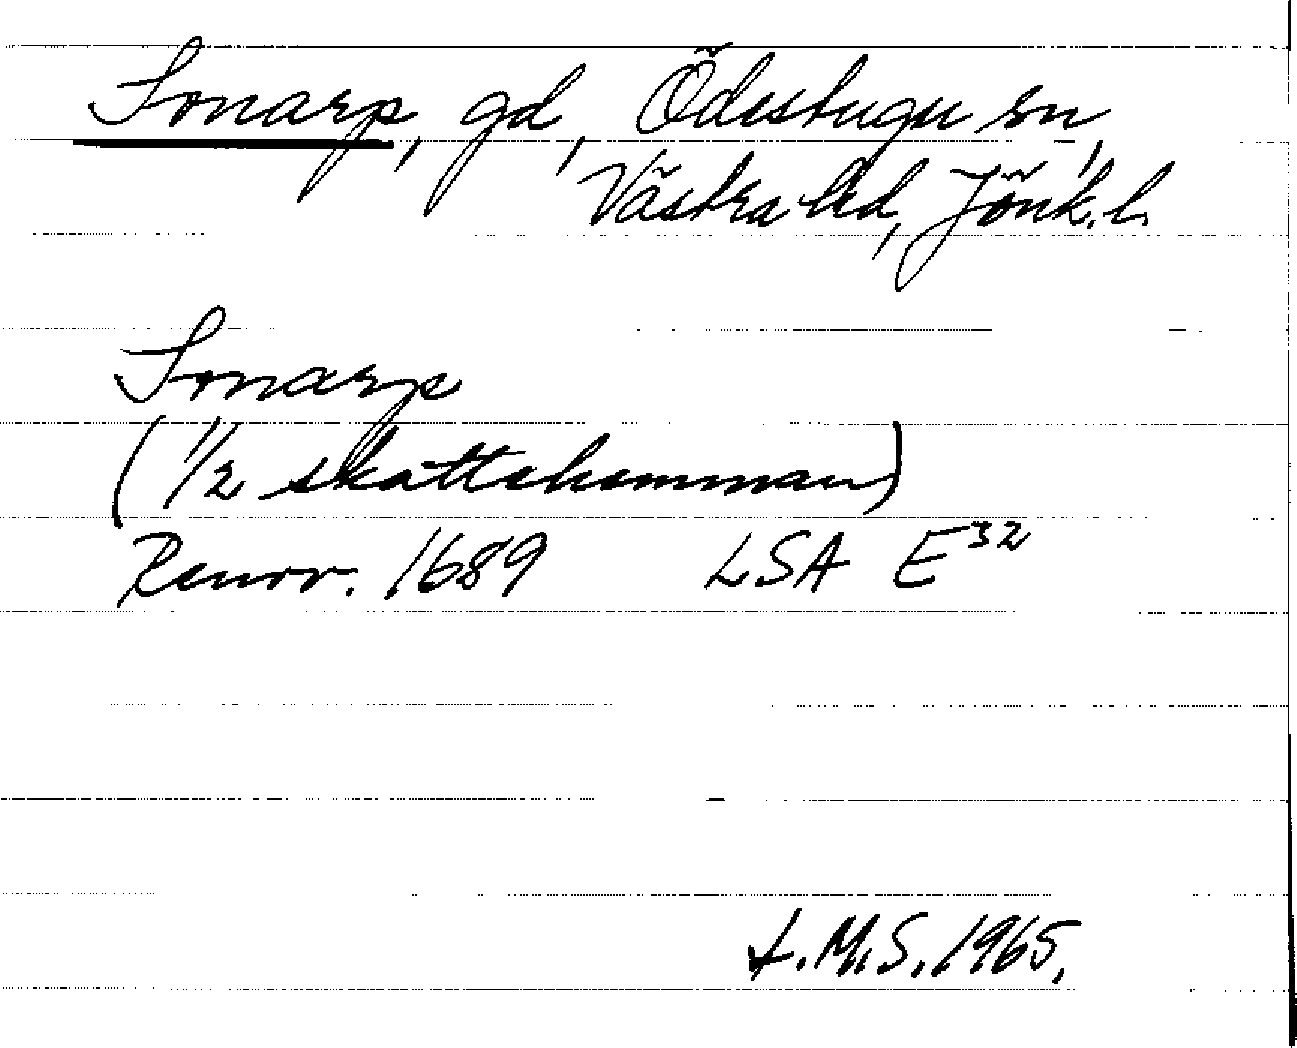 Sonarp, gd, Ödestugu sn,
Västra hd, Jönk. l.
Sonarp
(1/2 skattehemman)
Renov. 1689 LSA E32
L.M.S. 1965.